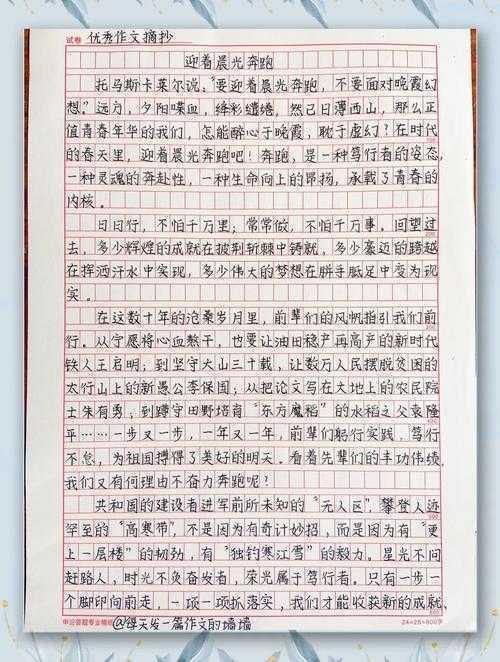 试卷 优秀作文摘抄
迎着晨光奔跑
托马斯卡莱尔说："要迎着晨光奔跑，不要面对晚霞幻
想。"远方，夕阳喋血，绛彩缱绻，然已日薄西山，那么正
值青春年华的我们，怎能醉心于晚霞，耽于虚幻？在时代
的春天里，迎着晨光奔跑吧！奔跑，是一种笃行者的姿态，
一种灵魂的奔赴性，一种生命向上的昂扬，承载了青春的
内核。
日日行，不怕千万里；常常做，不怕千万事。回望过
去，多少辉煌的成就在披荆斩棘中铸就，多少豪迈的跨越
在挥洒汗水中实现，多少伟大的梦想在胼手胝足中变为现
实。
在这数十年的沧桑岁月里，前辈们的风帆指引我们前
行。从宁愿将心血熬干，也要让油田稳产再高产的新时代
铁人王启明；到坚守大山三十载，让数万人民摆脱贫困的
太行山上的新愚公李保国；从把论文写在大地上的农民院
士朱有勇；到蹲守田野培育"东方魔稻"的水稻之父袁隆
平……一步又一步，一年又一年，前辈们躬行实践，笃行
不怠，为祖国搏得了美好的明天。看着先辈们的丰功伟绩，
我们又有何理由不奋力奔跑呢？
共和国的建设者进军前所未知的"无人区"，攀登人迹
罕至的"高寒带"，不是因为有奇计妙招，而是因为有"更
上一层楼"的韧劲，有"独钓寒江雪"的毅力。星光不问
赶路人，时光不负奋发者，荣光属于笃行者。只有一步一
个脚印向前走，一项一项抓落实，我们才能收获新的成就、
申论答题专业稿纸
@每天发一篇作文的墙墙
24×25=600字